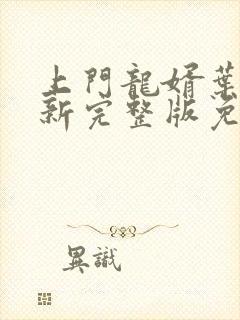 上門龍婿葉
新完整版免
異識